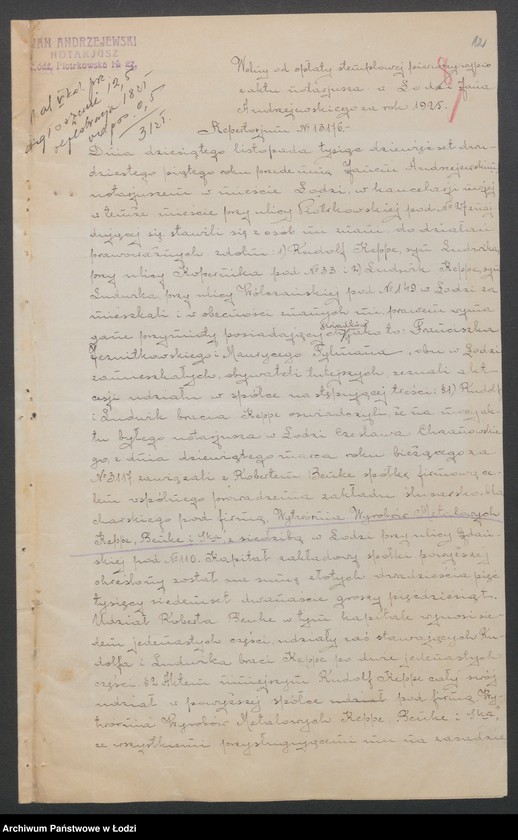 JAN ANDRZEJEWSKI
NOTARJUSZ
Łódź, Piotrkowska № 27.
12
Wolny od opłaty stemplowej pierwszy wypis
z aktu notarjusza w Łodzi Jana
Andrzejewskiego za rok 1925.
12,5
0,5
Repertorjum № 13176.-
Dnia dziesiątego listopada tysiąc dziewięćset dwu-
dziestego piątego roku przedemną Janem Andrzejewskim,
notarjuszem w mieście Łodzi, w kancelarji mojej
w temże mieście przy ulicy Piotrkowskiej pod № 27 znaj
dującej się, stawili się z osób mi znani, do działań
prawo zdolni: 1) Rudolf Keppe, syn Ludwika,
przy ulicy Kopernika pod № 33 i 2) Ludwik Keppe, syn
Ludwika przy ulicy Wólczańskiej pod № 149 w Łodzi za
mieszkali i w obecności znanych mi, prawem wyma
gane przymioty posiadających świadków jako to: Franciszka
i Maurycego Tylmana, obu w Łodzi
zamieszkałych, obywateli tutejszych, zeznali akt
cesji udziału w spółce następującej treści: §1) Rudolf
i Ludwik bracia Keppe oświadczyli, że na mocy ak-
tu byłego notarjusza w Łodzi Czesława Chrzanowskie
go, z dnia dziewiątego marca roku bieżącego za
№ 3117 zawiązali z Robertem Beuke spółkę firmową ce-
lem wspólnego prowadzenia zakładu ślusarsko-bla
charskiego pod firmą „Wytwórnia Wyrobów Metalowych
Keppe, Beuke i S-ka, z siedzibą w Łodzi przy ulicy Gdań-
skiej pod № 110. Kapitał zakładowy spółki powyższej
określony został na sumę złotych dwadzieścia pięć
tysięcy siedemset dwanaście groszy pięćdziesiąt.
Udział Roberta Beuke w tym kapitale wynosi sie-
dem jedenastych części, udziały zaś stawających Ru
dolfa i Ludwika braci Keppe po dwie jedenastych
części. §2. Aktem niniejszym Rudolf Keppe cały swój
udział w powyższej spółce udział pod firmą „Wy-
twórnia Wyrobów Metalowych Keppe, Beuke i S-ka",
ze wszystkiemi przysługującemi mu na zasadzie
Archiwum Państwowe w Łodzi